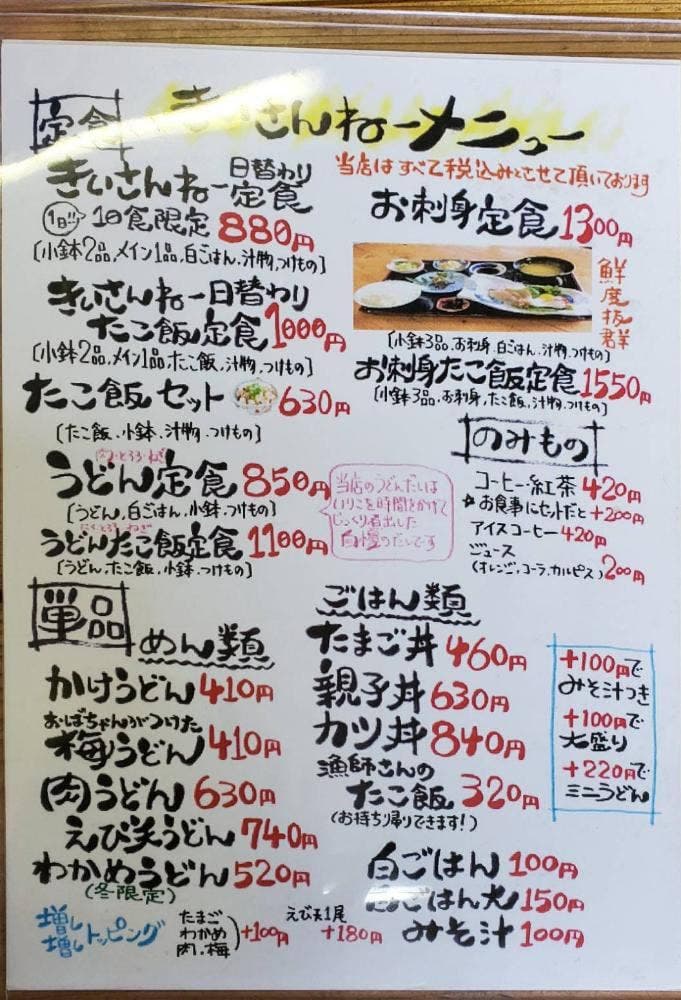 定食
きいさんねーメニュー
当店はすべて税込みとさせて頂いております
きいさんねー日替わり定食
1日!! 10食限定 880円
〔小鉢2品,メイン1品,白ごはん,汁物,つけもの〕
きいさんねー日替わり
たこ飯定食 1000円
〔小鉢2品,メイン1品,たこ飯,汁物,つけもの〕
たこ飯セット 630円
〔たこ飯.小鉢.汁物.つけもの〕
肉・とろろ・ねぎ
うどん定食 850円
〔うどん,白ごはん,小鉢.つけもの〕
にく・とろろ・ねぎ
うどんたこ飯定食 1100円
〔うどん,たこ飯,小鉢.つけもの〕
当店のうどんだしは
いりこを時間をかけて
じっくり煮出した
自慢のだしです
お刺身定食 1300円
鮮度抜群
〔小鉢3品,お刺身,白ごはん,汁物.つけもの〕
お刺身たこ飯定食 1550円
〔小鉢3品,お刺身,たこ飯,汁物,つけもの〕
のみもの
コーヒー・紅茶 420円
★お食事にセットだと+200円
アイスコーヒー 420円
ジュース
(オレンジ,コーラ,カルピス) 200円
単品
めん類
かけうどん 410円
おばちゃんがつけた
梅うどん 410円
肉うどん 630円
えび天うどん 740円
わかめうどん 520円
(冬限定)
増し増しトッピング
たまご
わかめ
肉・梅
+100円
えび天1尾
+180円
ごはん類
たまご丼 460円
親子丼 630円
カツ丼 840円
漁師さんの
たこ飯 320円
(お持ち帰りできます!)
白ごはん 100円
白ごはん大 150円
みそ汁 100円
+100円で
みそ汁つき
+100円で
大盛り
+220円で
ミニうどん